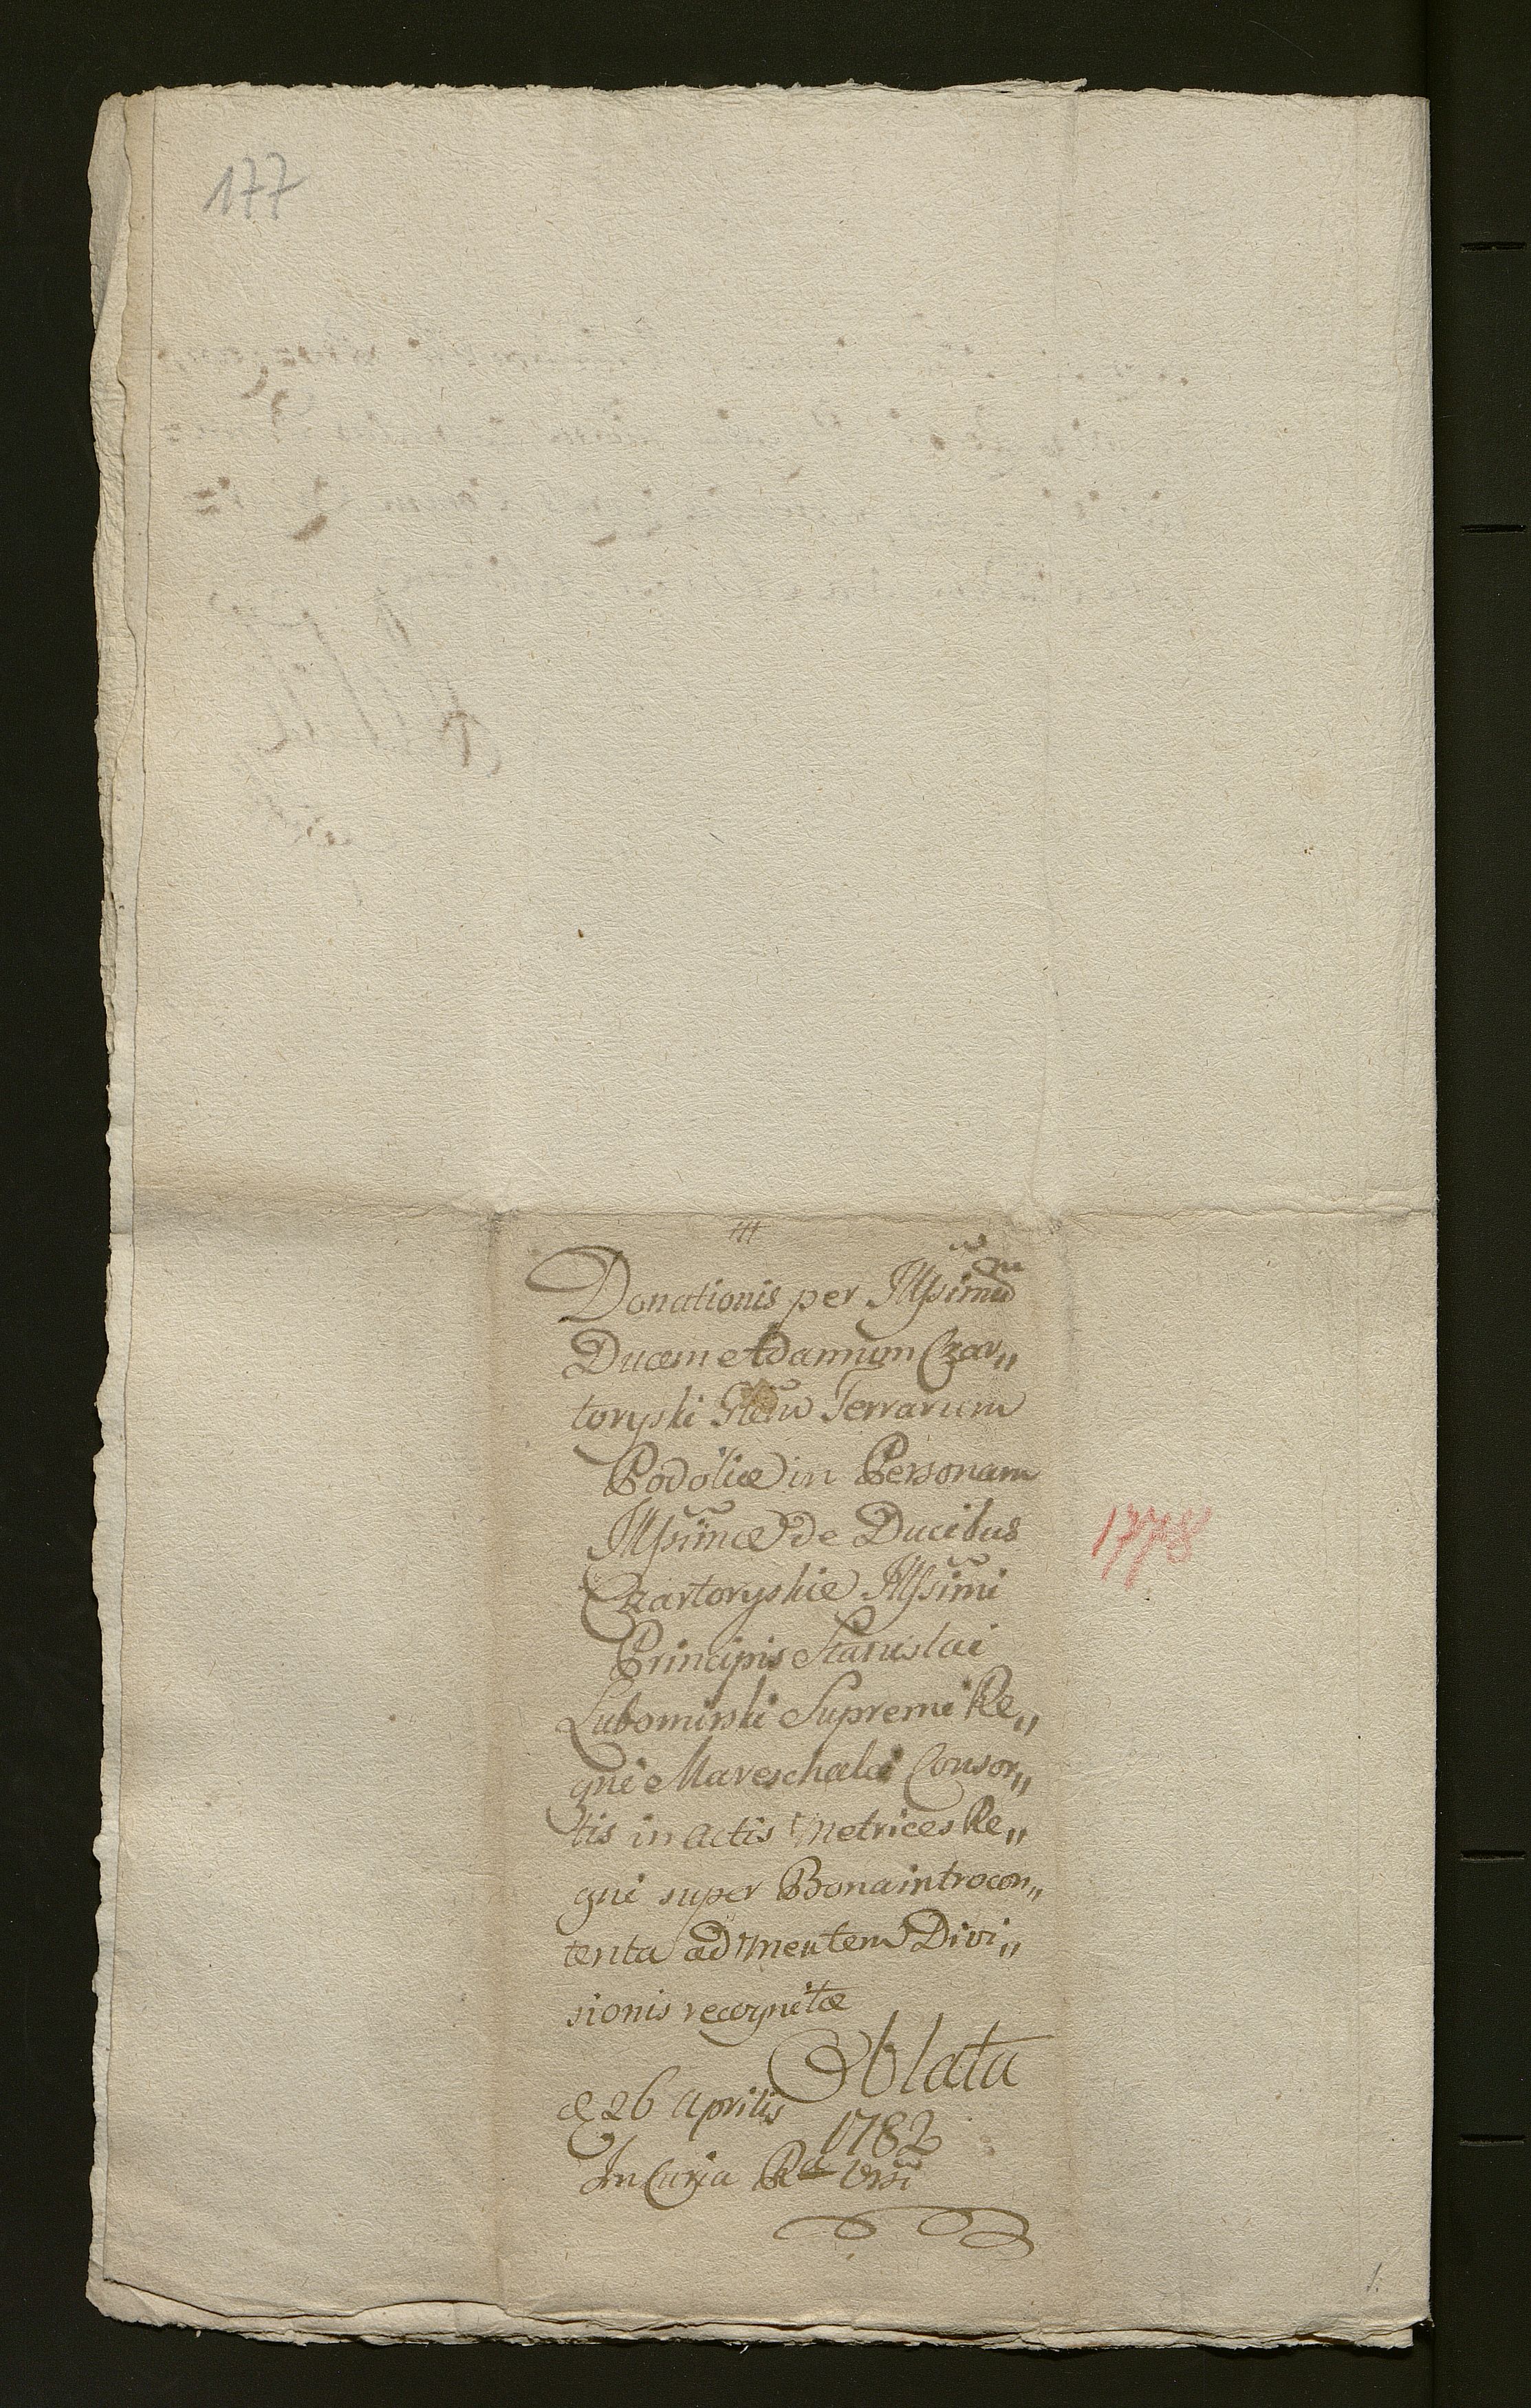 177
Donationis per Illssimũ
Ducem Adamum Czar„
toryski Gñlem Terrarum
Podoliæ in Personam
Illssimæ de Ducibus
Czartoryskie Illssimi
Principis Stanislai
Lubomirski Supremi Re„
gni Mareschalci Consor„
tis in Actis Metrices Re„
gni super Bona introcon„
tenta ad mentem Divi„
sionis recognitæ
Oblata
26 Aprilis
1782
In Curia Ra Vrsi
1778
1.